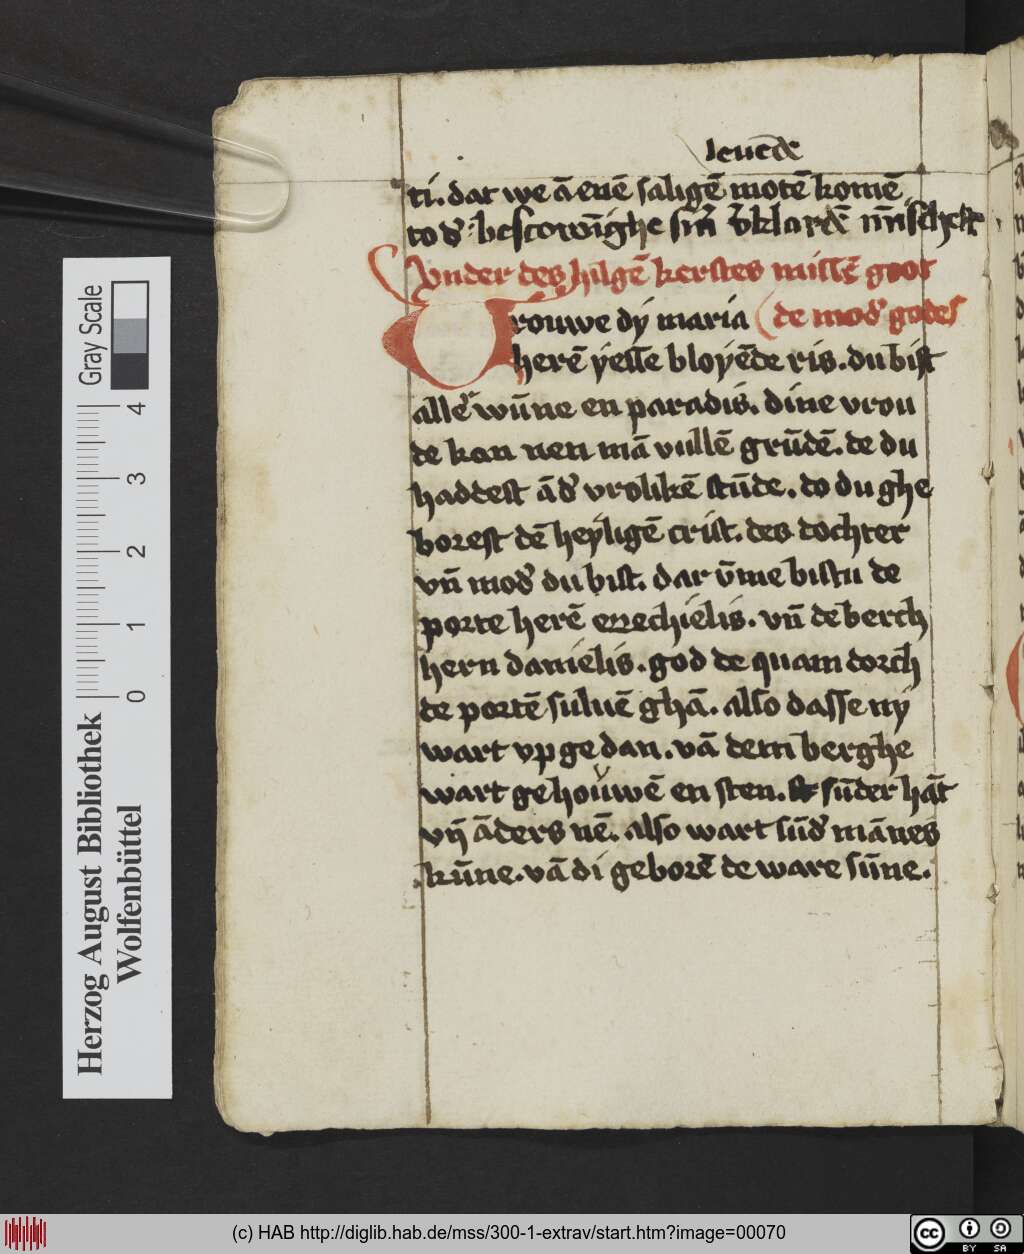 leuēde
ti. dat we ā enē saligē motē komē
to d' bescowīghe sin̄
Vnder des hilgē kerstes missē grot
Vrouwe dÿ maria de mod' godes
herē yesse bloyēde ris. du bist
alle wūne en paradis. dine vrou
de kan nen mā vullē grūdē. de du
haddest ād' vrolikē stūde. do du ghe
borest dē heyligē crist. des dochter
vn̄ mod' du bist. dar v̄me bistu de
porte herē ezechielis. vn̄ de berch
hern danielis. god de quam dorch
de portē suluē ghā. also dasse ny
wart vp ge dan. vā dem berghe
wart gehouwē en sten. sūder hāt
vn̄ āders nē. also wart sūd' mānes
kūne. vā di geborē de ware sūne.
Gray Scale
0 1 2 3 4
Herzog August Bibliothek
Wolfenbüttel
(c) HAB http://diglib.hab.de/mss/300-1-extrav/start.htm?image=00070
cc
BY SA